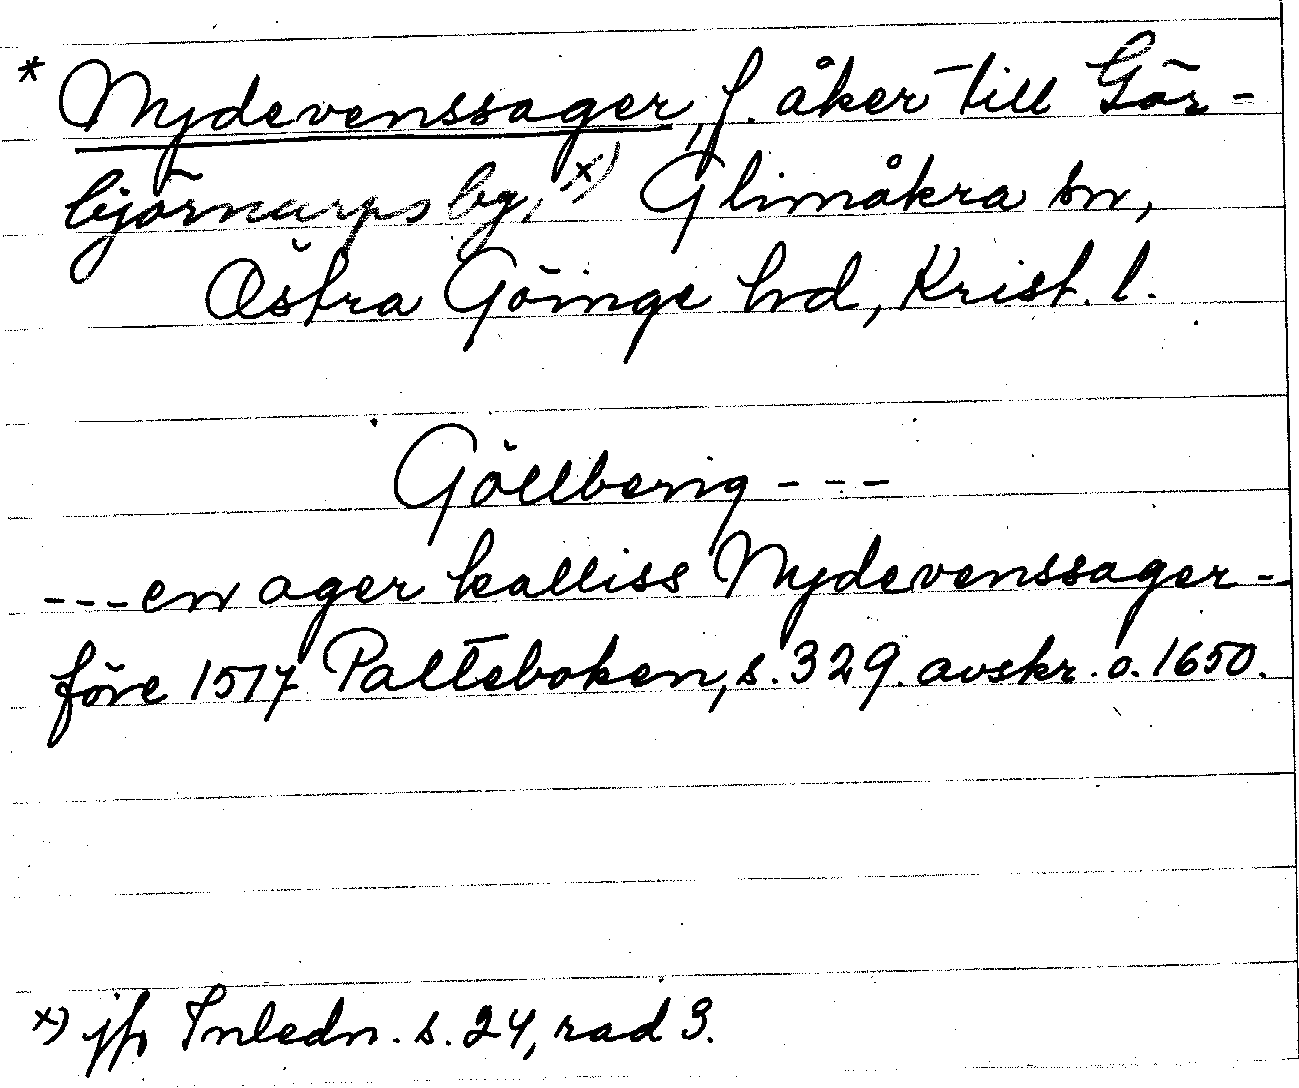 * Mydevenssager, f. åker till Gör-
björnarps by, x) Glimåkra sn,
Östra Göinge hd, Krist. l.
Göllberig - - -
- - - en ager kalliss Mydevenssager -
före 1517 Palteboken, s. 329. avskr. o. 1650.
x) jfr Inledn. s. 24, rad 3.